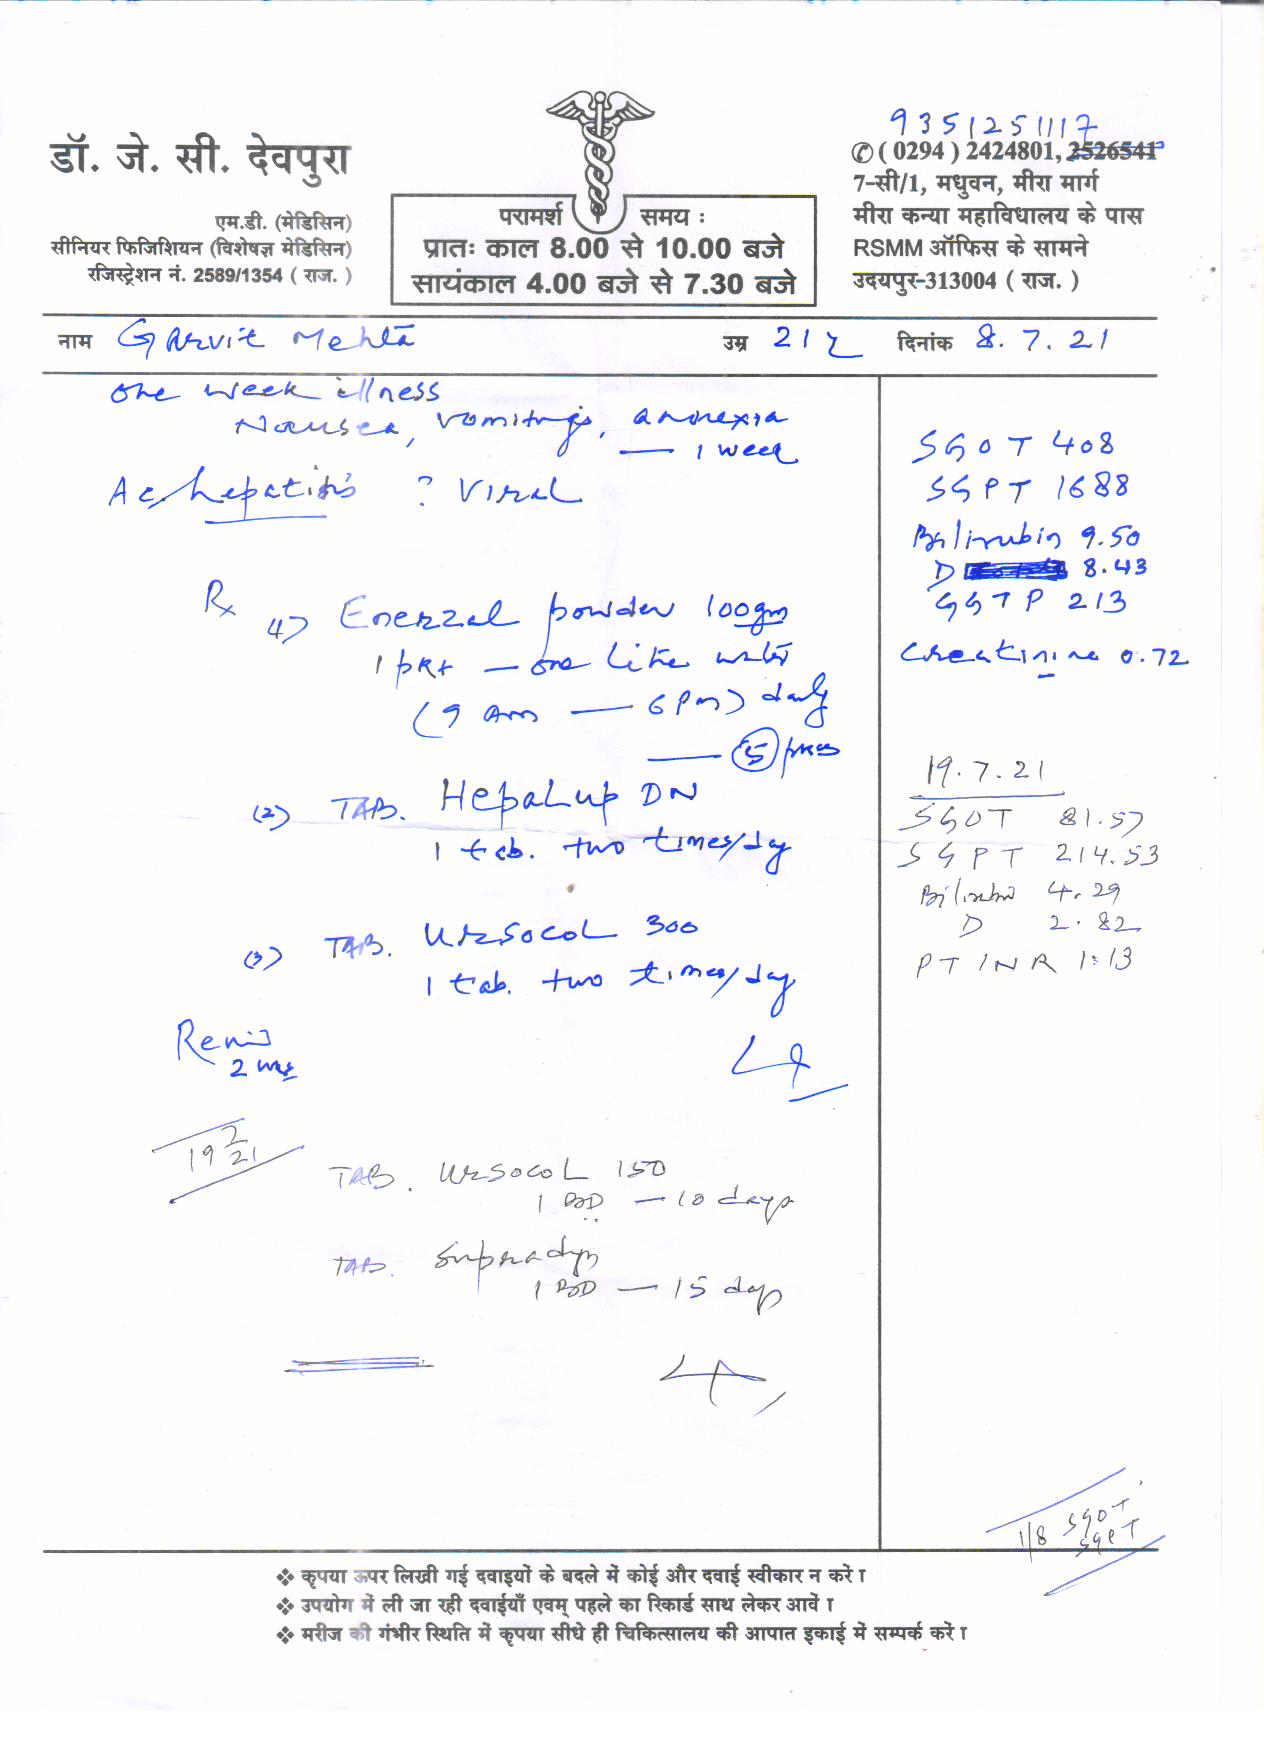 डॉ. जे. सी. देवपुरा
एम.डी. (मेडिसिन)
सीनियर फिजिशियन (विशेषज्ञ मेडिसिन)
रजिस्ट्रेशन नं. 2589/1354 ( राज. )
परामर्श समय :
प्रातः काल 8.00 से 10.00 बजे
सायंकाल 4.00 बजे से 7.30 बजे
9351251117
✆ ( 0294 ) 2424801, 2526541
7-सी/1, मधुवन, मीरा मार्ग
मीरा कन्या महाविद्यालय के पास
RSMM ऑफिस के सामने
उदयपुर-313004 ( राज. )
नाम Garvit Mehta उम्र 21 y दिनांक 8. 7. 21
one week illness
Nausea, vomitings, anorexia
— 1 week
Ac. hepatitis ? Viral
Rx 1) Enerzal powder 100gm
1 pkt — one litre water
(9 am — 6 pm) daily
— 5
(2) TAB. Hepalup DN
1 tab. two times/day
(3) TAB. URSOCOL 300
1 tab. two times/day
2
SGOT 408
SGPT 1688
Bilirubin 9.50
D 8.43
GGTP 213
Creatinine 0.72
19.7.21
SGOT 81.57
SGPT 214.53
Bilirubin 4.29
D 2.82
PT INR 1.13
19/7/21
TAB. URSOCOL 150
1 BD — 10 days
TAB. Supradyn
1 BD — 15 days
1/8 SGOT
SGPT
❖ कृपया ऊपर लिखी गई दवाइयों के बदले में कोई और दवाई स्वीकार न करें ।
❖ उपयोग में ली जा रही दवाईयाँ एवम् पहले का रिकार्ड साथ लेकर आवें ।
❖ मरीज की गंभीर स्थिति में कृपया सीधे ही चिकित्सालय की आपात इकाई में सम्पर्क करें ।